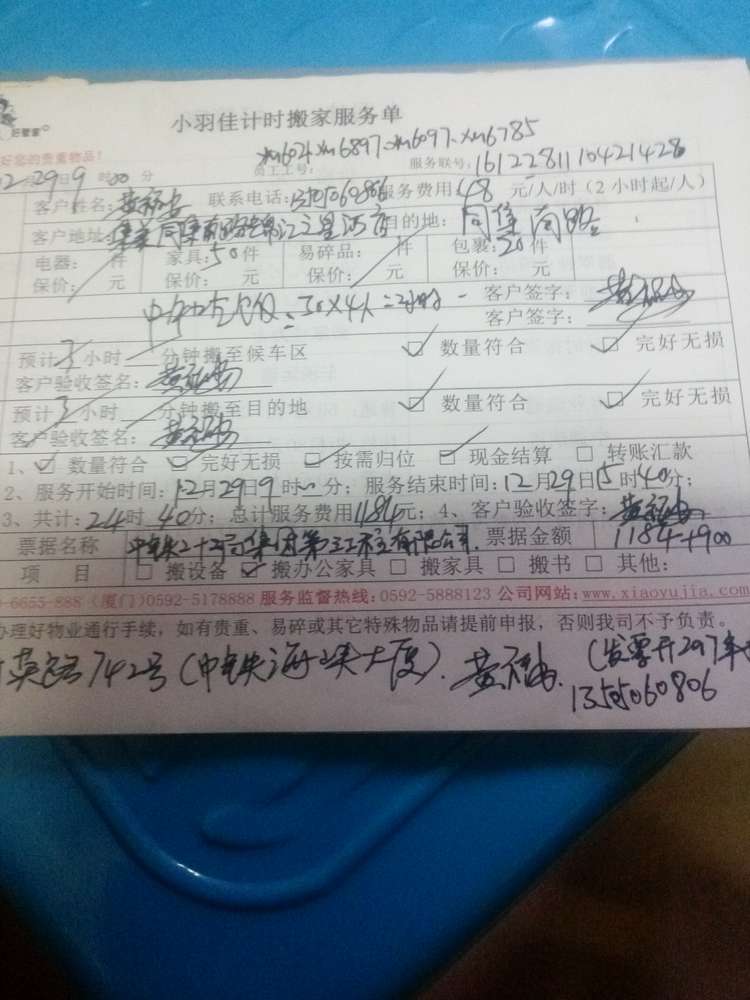 好管家
小羽佳计时搬家服务单
好您的贵重物品!
xm604 xm6897 xm6097 xm6785
员工工号: 服务联号: 16122811010421428
12 29 日 9 时 00 分
客户姓名: 联系电话: 服务费用 48 元/人/时(2小时起/人)
客户地址: 集美同集南路锦江之星酒店 目的地: 同集南路
电器: 件 家具: 50件 易碎品: 件 包裹: 20件
保价: 元 保价: 元 保价: 元 保价: 元
中午吃饭: 30×4人=2小时 客户签字:
客户签字:
预计 3 小时 分钟搬至候车区 数量符合 完好无损
客户验收签名:
预计 3 小时 分钟搬至目的地 数量符合 完好无损
客户验收签名:
1、 数量符合 完好无损 按需归位 现金结算 转账汇款
2、服务开始时间: 12月29日9时 分; 服务结束时间: 12月29日15时40分;
3、共计: 24时40分; 总计服务费用1184元; 4、客户验收签字:
票据名称 中铁二十二局集团第三工程有限公司. 票据金额 1184+900
项 目 搬设备 搬办公家具 搬家具 搬书 其他:
-6655-888 (厦门)0592-5178888 服务监督热线:0592-5888123 公司网站:www.xiaoyujia.com
办理好物业通行手续,如有贵重、易碎或其它特殊物品请提前申报,否则我司不予负责。
742号(中铁海峡大厦). (发票开